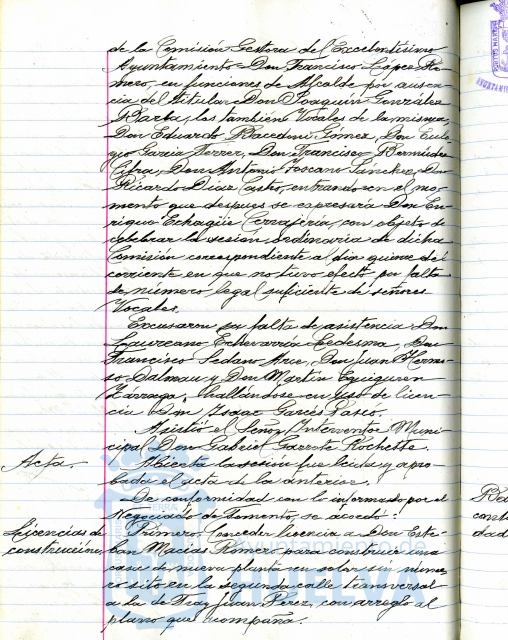 de la Comisión Gestora del Excelentísimo
Ayuntamiento Don Francisco López Ro-
mero, en funciones de Alcalde por ausen-
cia del titular Don Joaquín González
Barba, los también Vocales de la misma,
Don Eduardo Bacedoni Gómez, Don Eulo-
gio García Ferrer, Don Francisco Bermúdez
Cifra, Don Antonio Toscano Sánchez, Don
Ricardo Díaz Castro, entrando en el mo-
mento que después se expresará Don En-
rique Echagüe Cerrajería, con objeto de
celebrar la sesión ordinaria de dicha
Comisión correspondiente al día quince del
corriente en que no tuvo efecto por falta
de número legal suficiente de señores
Vocales.
Excusaron su falta de asistencia Don
Laureano Echevarría Ledesma, Don
Francisco Sedano Arce, Don Juan Hermo-
so Dalmau y Don Martín Eguiguren
Zárraga, hallándose en uso de licen-
cia Don Isaac Garcés Pasco.
Asistió el Señor Interventor Muni-
cipal Don Gabriel Garrote Rochette.
Acta.
Abierta la sesión fue leída y apro-
bada el acta de la anterior.
De conformidad con lo informado por el
Negociado de Fomento, se acordó:
Licencias de
construcción
Primero, Conceder licencia a Don Este-
ban Macías Romero para construir una
casa de nueva planta en solar sin núme-
ro sito en la segunda calle transversal
a la de Fray Juan Pérez, con arreglo al
plano que acompaña.
Ayuntamiento de
HUELVA